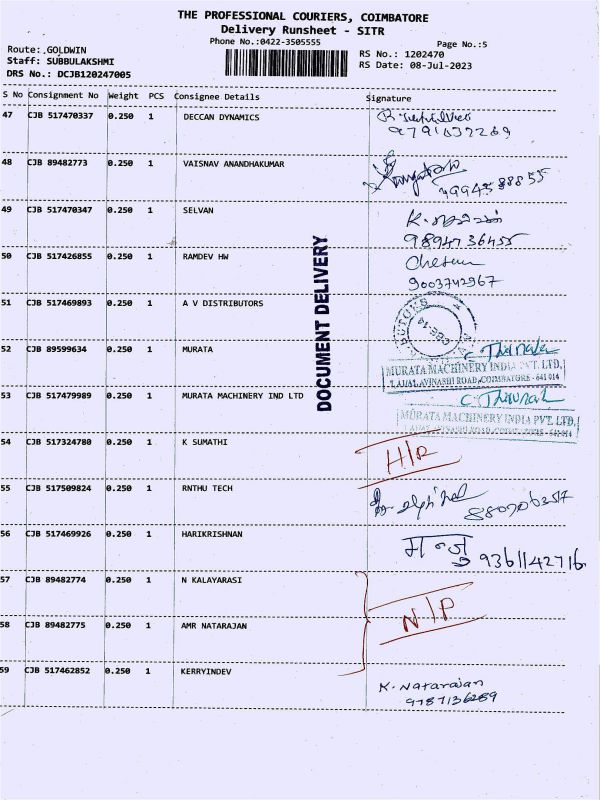 THE PROFESSIONAL COURIERS, COIMBATORE
Delivery Runsheet - SITR
Phone No.:0422-3505555
Page No.:5
Route: .GOLDWIN
RS No.: 1202470
Staff: SUBBULAKSHMI
RS Date: 08-Jul-2023
DRS No.: DCJB120247005
S No Consignment No Weight PCS Consignee Details Signature
47 CJB 517470337 0.250 1 DECCAN DYNAMICS
9791032269
48 CJB 89482773 0.250 1 VAISNAV ANANDHAKUMAR
9994588855
49 CJB 517470347 0.250 1 SELVAN
9894736455
50 CJB 517426855 0.250 1 RAMDEV HW
9003742967
DOCUMENT DELIVERY
51 CJB 517469893 0.250 1 A V DISTRIBUTORS
52 CJB 89599634 0.250 1 MURATA
MURATA MACHINERY INDIA PVT. LTD.
AVINASHI ROAD, COIMBATORE - 641 014
53 CJB 517479989 0.250 1 MURATA MACHINERY IND LTD
MURATA MACHINERY INDIA PVT. LTD.
54 CJB 517324780 0.250 1 K SUMATHI
55 CJB 517509824 0.250 1 RNTHU TECH
56 CJB 517469926 0.250 1 HARIKRISHNAN
9361142716
57 CJB 89482774 0.250 1 N KALAYARASI
58 CJB 89482775 0.250 1 AMR NATARAJAN
N/P
59 CJB 517462852 0.250 1 KERRYINDEV
K. Natarajan
9787136289